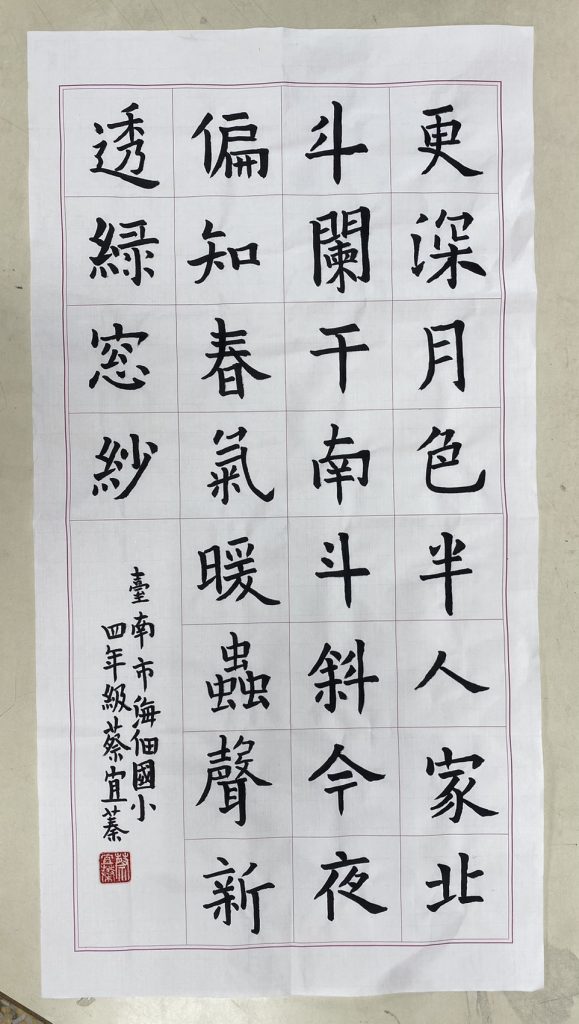 更深月色半人家北
斗闌干南斗斜今夜
偏知春氣暖蟲聲新
透綠窓紗
臺南市海佃國小
四年級蔡宜蓁
蔡宜蓁